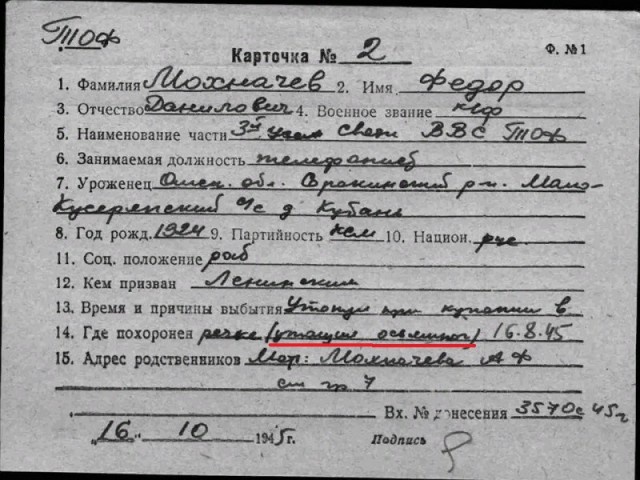 ТОФ
Карточка № 2 Ф. № 1
1. Фамилия Мохначев 2. Имя Федор
3. Отчество Данилович 4. Военное звание кф
5. Наименование части 3й Участ Связи ВВС ТОФ
6. Занимаемая должность телефонист
7. Уроженец Омск. обл. р-н. Мало-
д Кубань
8. Год рожд. 1924 9. Партийность ксм 10. Национ. рус
11. Соц. положение раб
12. Кем призван Ленинским
13. Время и причины выбытия Утонул при купании в
14. Где похоронен речке (утащил осьминог) 16.8.45
15. Адрес родственников Мохначева А Ф
Вх. № донесения 3570с 45г
„16" 10 1945г. Подпись